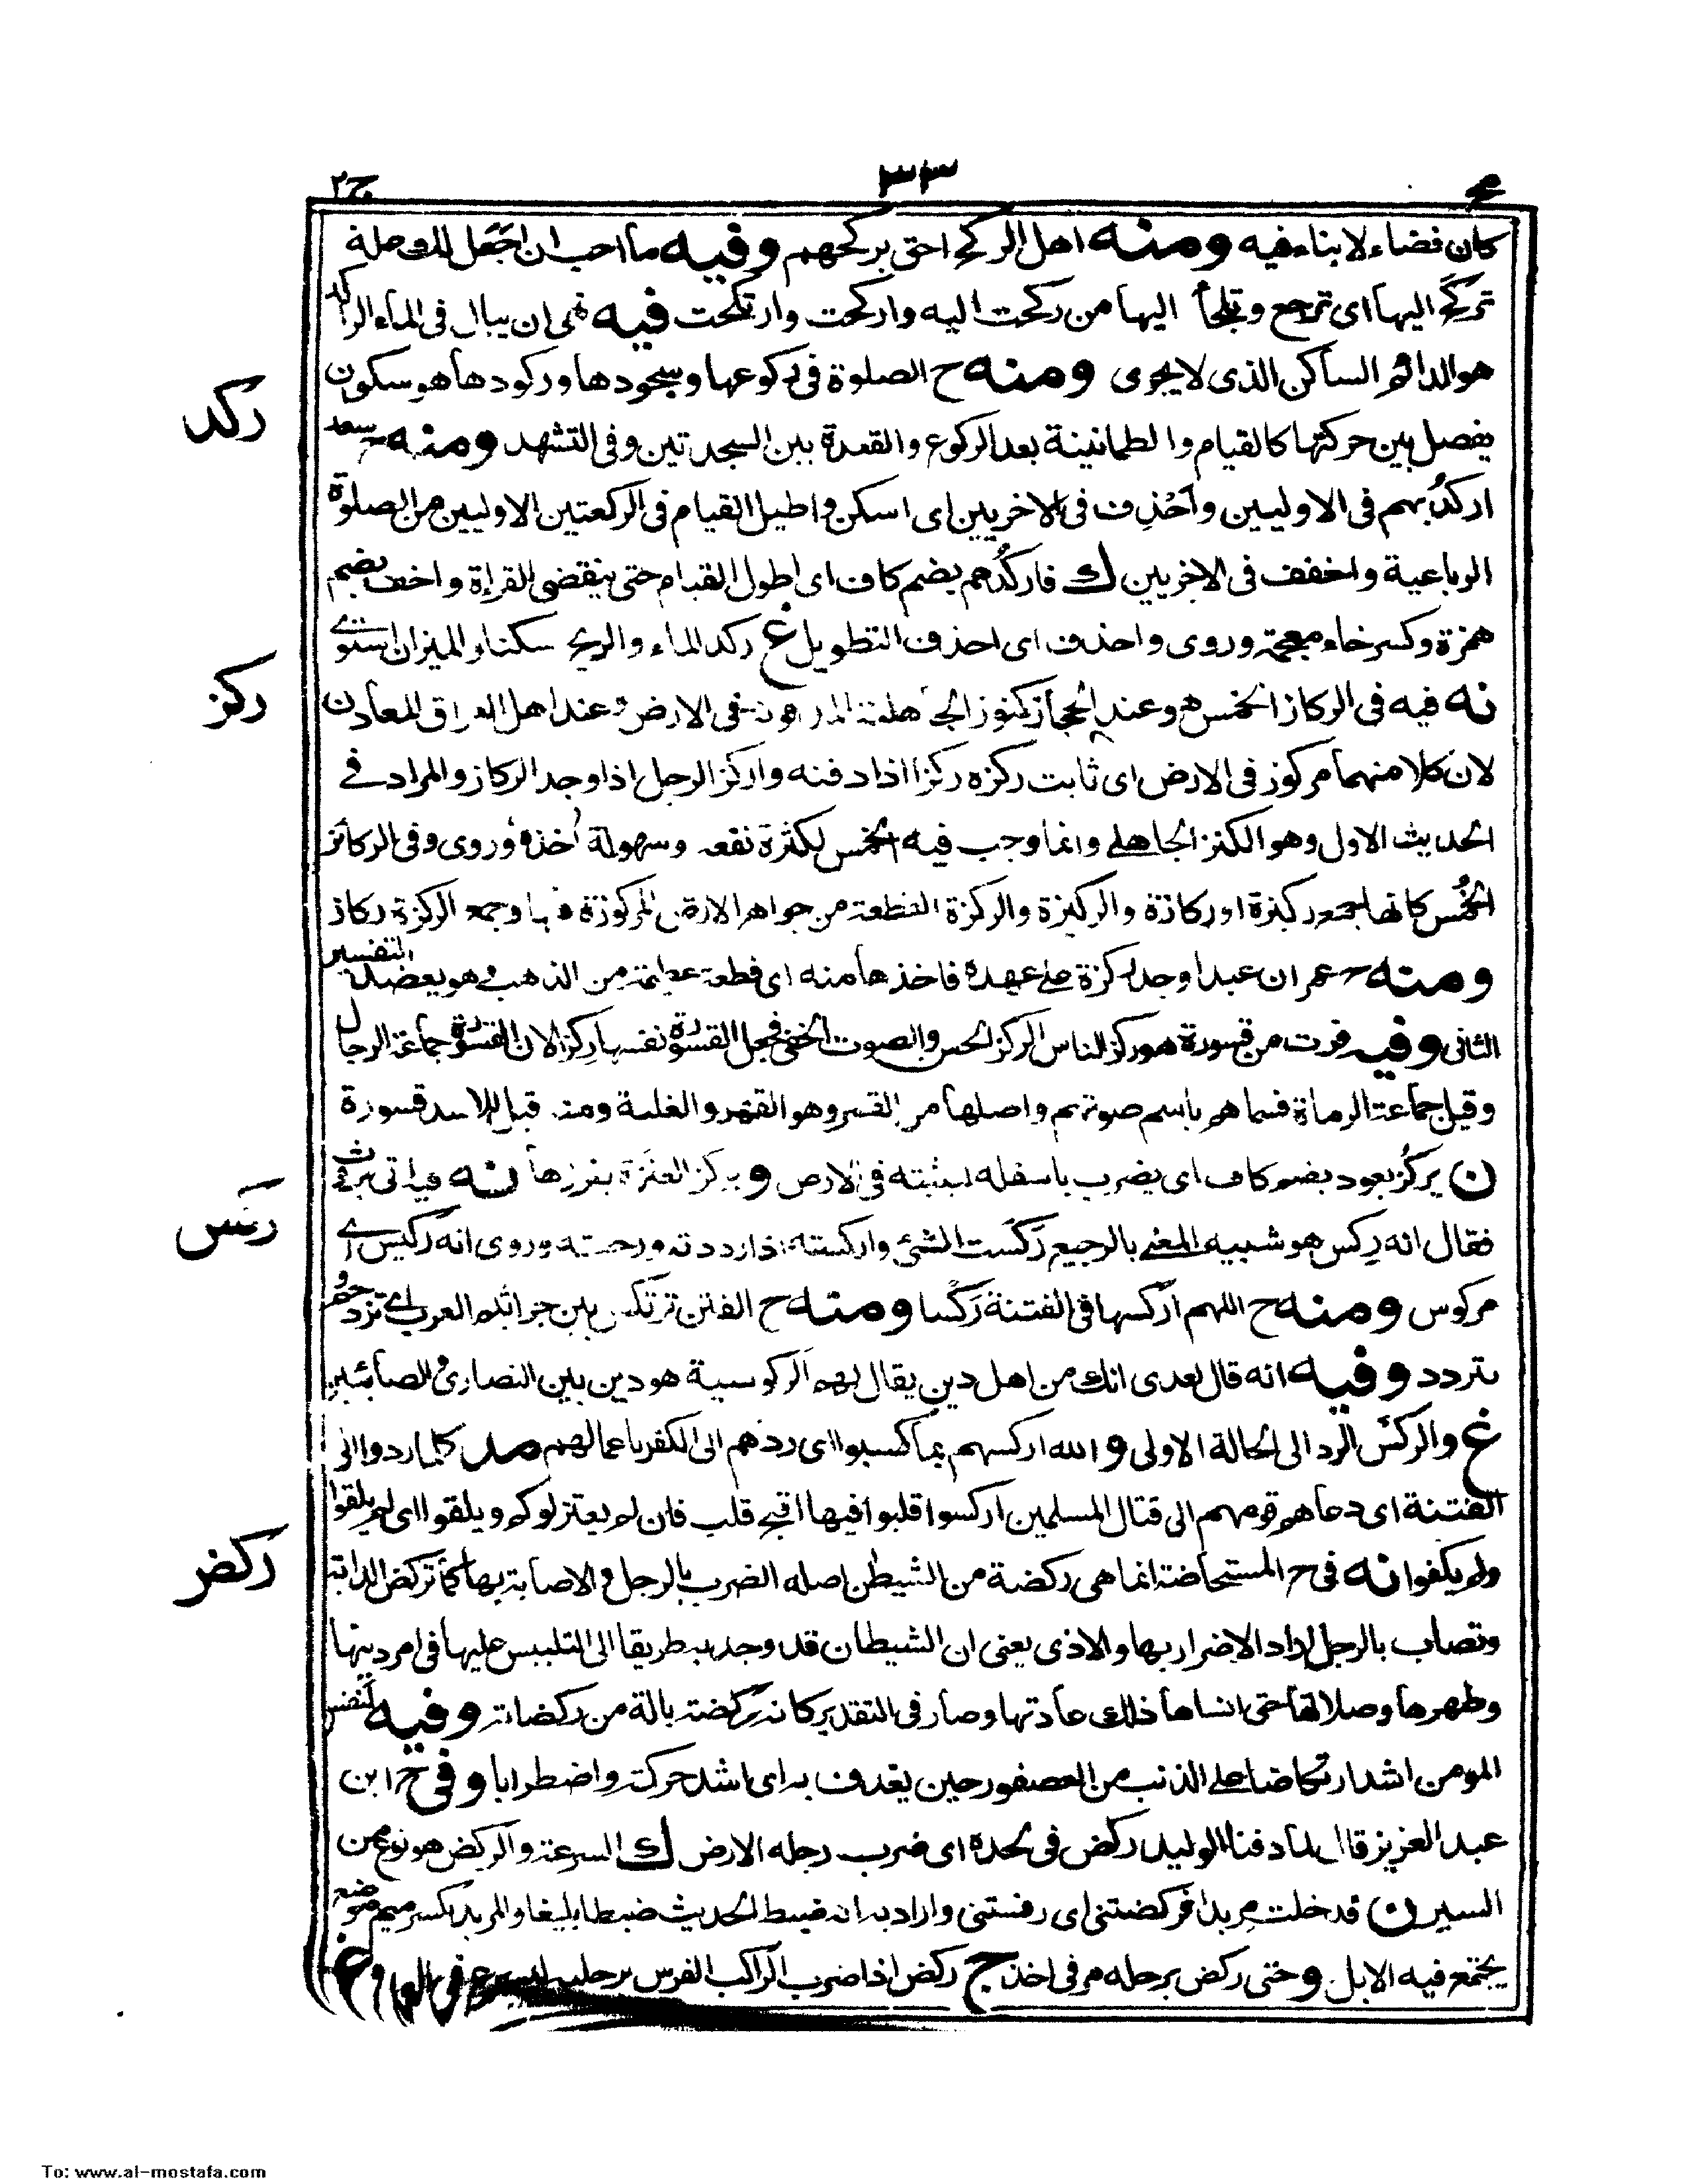 مج ٣٣ ج٢
كان فضاء لا بناء فيه ومنه اهل الركح احق بركحهم وفيه ما احب ان اجعل لك علة
تركح اليها اى ترجع وتلجأ اليها من ركحت اليه واركحت وارتكحت فيه نهى ان يبال فى الماء الراكد
ركد
هو الدائم الساكن الذى لا يجرى ومنه ح الصلوة فى ركوعها وسجودها وركودها هو سكون
يفصل بين حركتها كالقيام والطمانينة بعد الركوع والقعدة بين السجدتين وفى التشهد ومنه ح سعد
اركد بهم فى الاوليين واحذف فى الاخريين اى اسكن واطيل القيام فى الركعتين الاوليين من الصلوة
الرباعية واخفف فى الاخريين ك فاركدهم بضم كاف اى اطول القيام حتى ينقضى القراءة واخف بضم
همزة وكسر خاء معجمة وروى واحذف اى احذف التطويل غ ركد الماء والريح سكنا والميزان استوى
ركز
نه فيه فى الركاز الخمس هو عند الحجاز كنوز الجاهلية المدفونة فى الارض وعند اهل العراق المعادن
لان كلا منهما مركوز فى الارض اى ثابت ركزه ركزا اذا دفنه واركز الرجل اذا وجد الركاز والمراد فى
الحديث الاول وهو الكنز الجاهلى وانما وجب فيه الخمس لكثرة نفعه وسهولة اخذه وروى وفى الركائز
الخمس كانها جمع ركيزة او ركازة والركيزة والركزة القطعة من جواهر الارض المركوزة فيها وجمع الركزة ركاز
ومنه ح عمر ان عبدا وجد ركزة على عهده فاخذها منه اى قطعة عظيمة من الذهب وهو يعضد التفسير
الثانى وفيه فرت من قسورة هو ركز الناس الركز الحس والصوت الخفى فجعل القسورة نفسها ركزا لان القسورة جماعة الرجال
وقيل جماعة الرماة فسماهم باسم صوتهم واصلها من القسر وهو القهر والغلبة ومنه قيل للاسد قسورة
ن يركز بعود بضم كاف اى يضرب باسفله ليثبته فى الارض ويركز العنزة يغرزها نه فيه اتى بروث
ركس
فقال انه ركس هو شبيه المعنى بالرجيع ركست الشئ واركسته اذا رددته ورجعته وروى انه ركيس اى
مركوس ومنه ح اللهم اركسها فى الفتنة ركسا ومنه ح الفتن ترتكس بين جراثيم العرب اى تزدحم و
تتردد وفيه انه قال لعدى انك من اهل دين يقال لهم الركوسية هو دين بين النصارى والصابئين
غ والركس الرد الى الحالة الاولى و الله اركسهم بما كسبوا اى ردهم الى الكفر باعمالهم مد كلما ردوا الى
الفتنة اى دعاهم قومهم الى قتال المسلمين اركسوا قلبوا فيها اقبح قلب فان لم يعتزلوكم ويلقوا اى لم يلقوا
ركض
ولم يكفوا نه فى ح المستحاضة انما هى ركضة من الشيطن اصله الضرب بالرجل والاصابة بها كما تركض الدابة
وتصاب بالرجل اراد الاضرار بها والاذى يعنى ان الشيطان قد وجد به طريقا الى التلبيس عليها فى امر دينها
وطهرها وصلاتها حتى انساها ذلك عادتها وصار فى التقدير كانه ركضة بالة من ركضاته وفيه لنفس
المومن اشد ارتكاضا على الذنب من العصفور حين يغدف به اى اشد حركة واضطرابا وفى ح ابن
عبد العزيز قال لما دفنا الوليد ركض فى لحده اى ضرب رجله الارض ك السرعة والركض هو نوع من
السير ن قد دخلت مربدا فركضتنى اى رفستنى واراد به انه ضبط الحديث ضبطا بليغا والمربد بكسر ميم موضع
يجتمع فيه الابل وحتى ركض برجله مر فى اخذ ج ركض اذا ضرب الراكب الفرس برجليه
To: www.al-mostafa.com